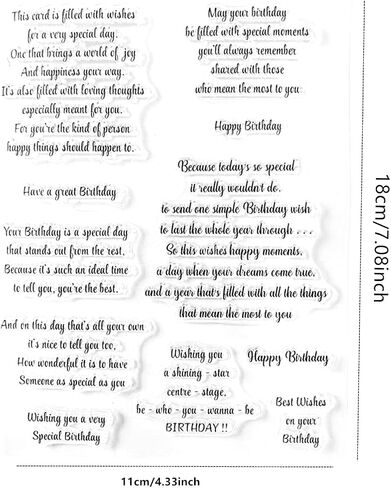 This card is filled with wishes
for a very special day.
One that brings a world of joy
And happiness your way.
It's also filled with loving thoughts
especially meant for you.
For you're the kind of person
happy things should happen to.
Have a great Birthday
Your Birthday is a special day
that stands out from the rest.
Because it's such an ideal time
to tell you, you're the best.
And on this day that's all your own
it's nice to tell you too,
How wonderful it is to have
Someone as special as you
Wishing you a very
Special Birthday
May your birthday
be filled with special moments
you'll always remember
shared with those
who mean the most to you
Happy Birthday
Because today's so special
it really wouldn't do.
to send one simple Birthday wish
to last the whole year through . . .
So this wishes happy moments.
a day when your dreams come true.
and a year that's filled with all the things
that mean the most to you
Wishing you
a shining - star
centre - stage.
be - who - you - wanna - be
BIRTHDAY !!
Happy Birthday
Best Wishes
on your
Birthday
18cm/7.08inch
11cm/4.33inch